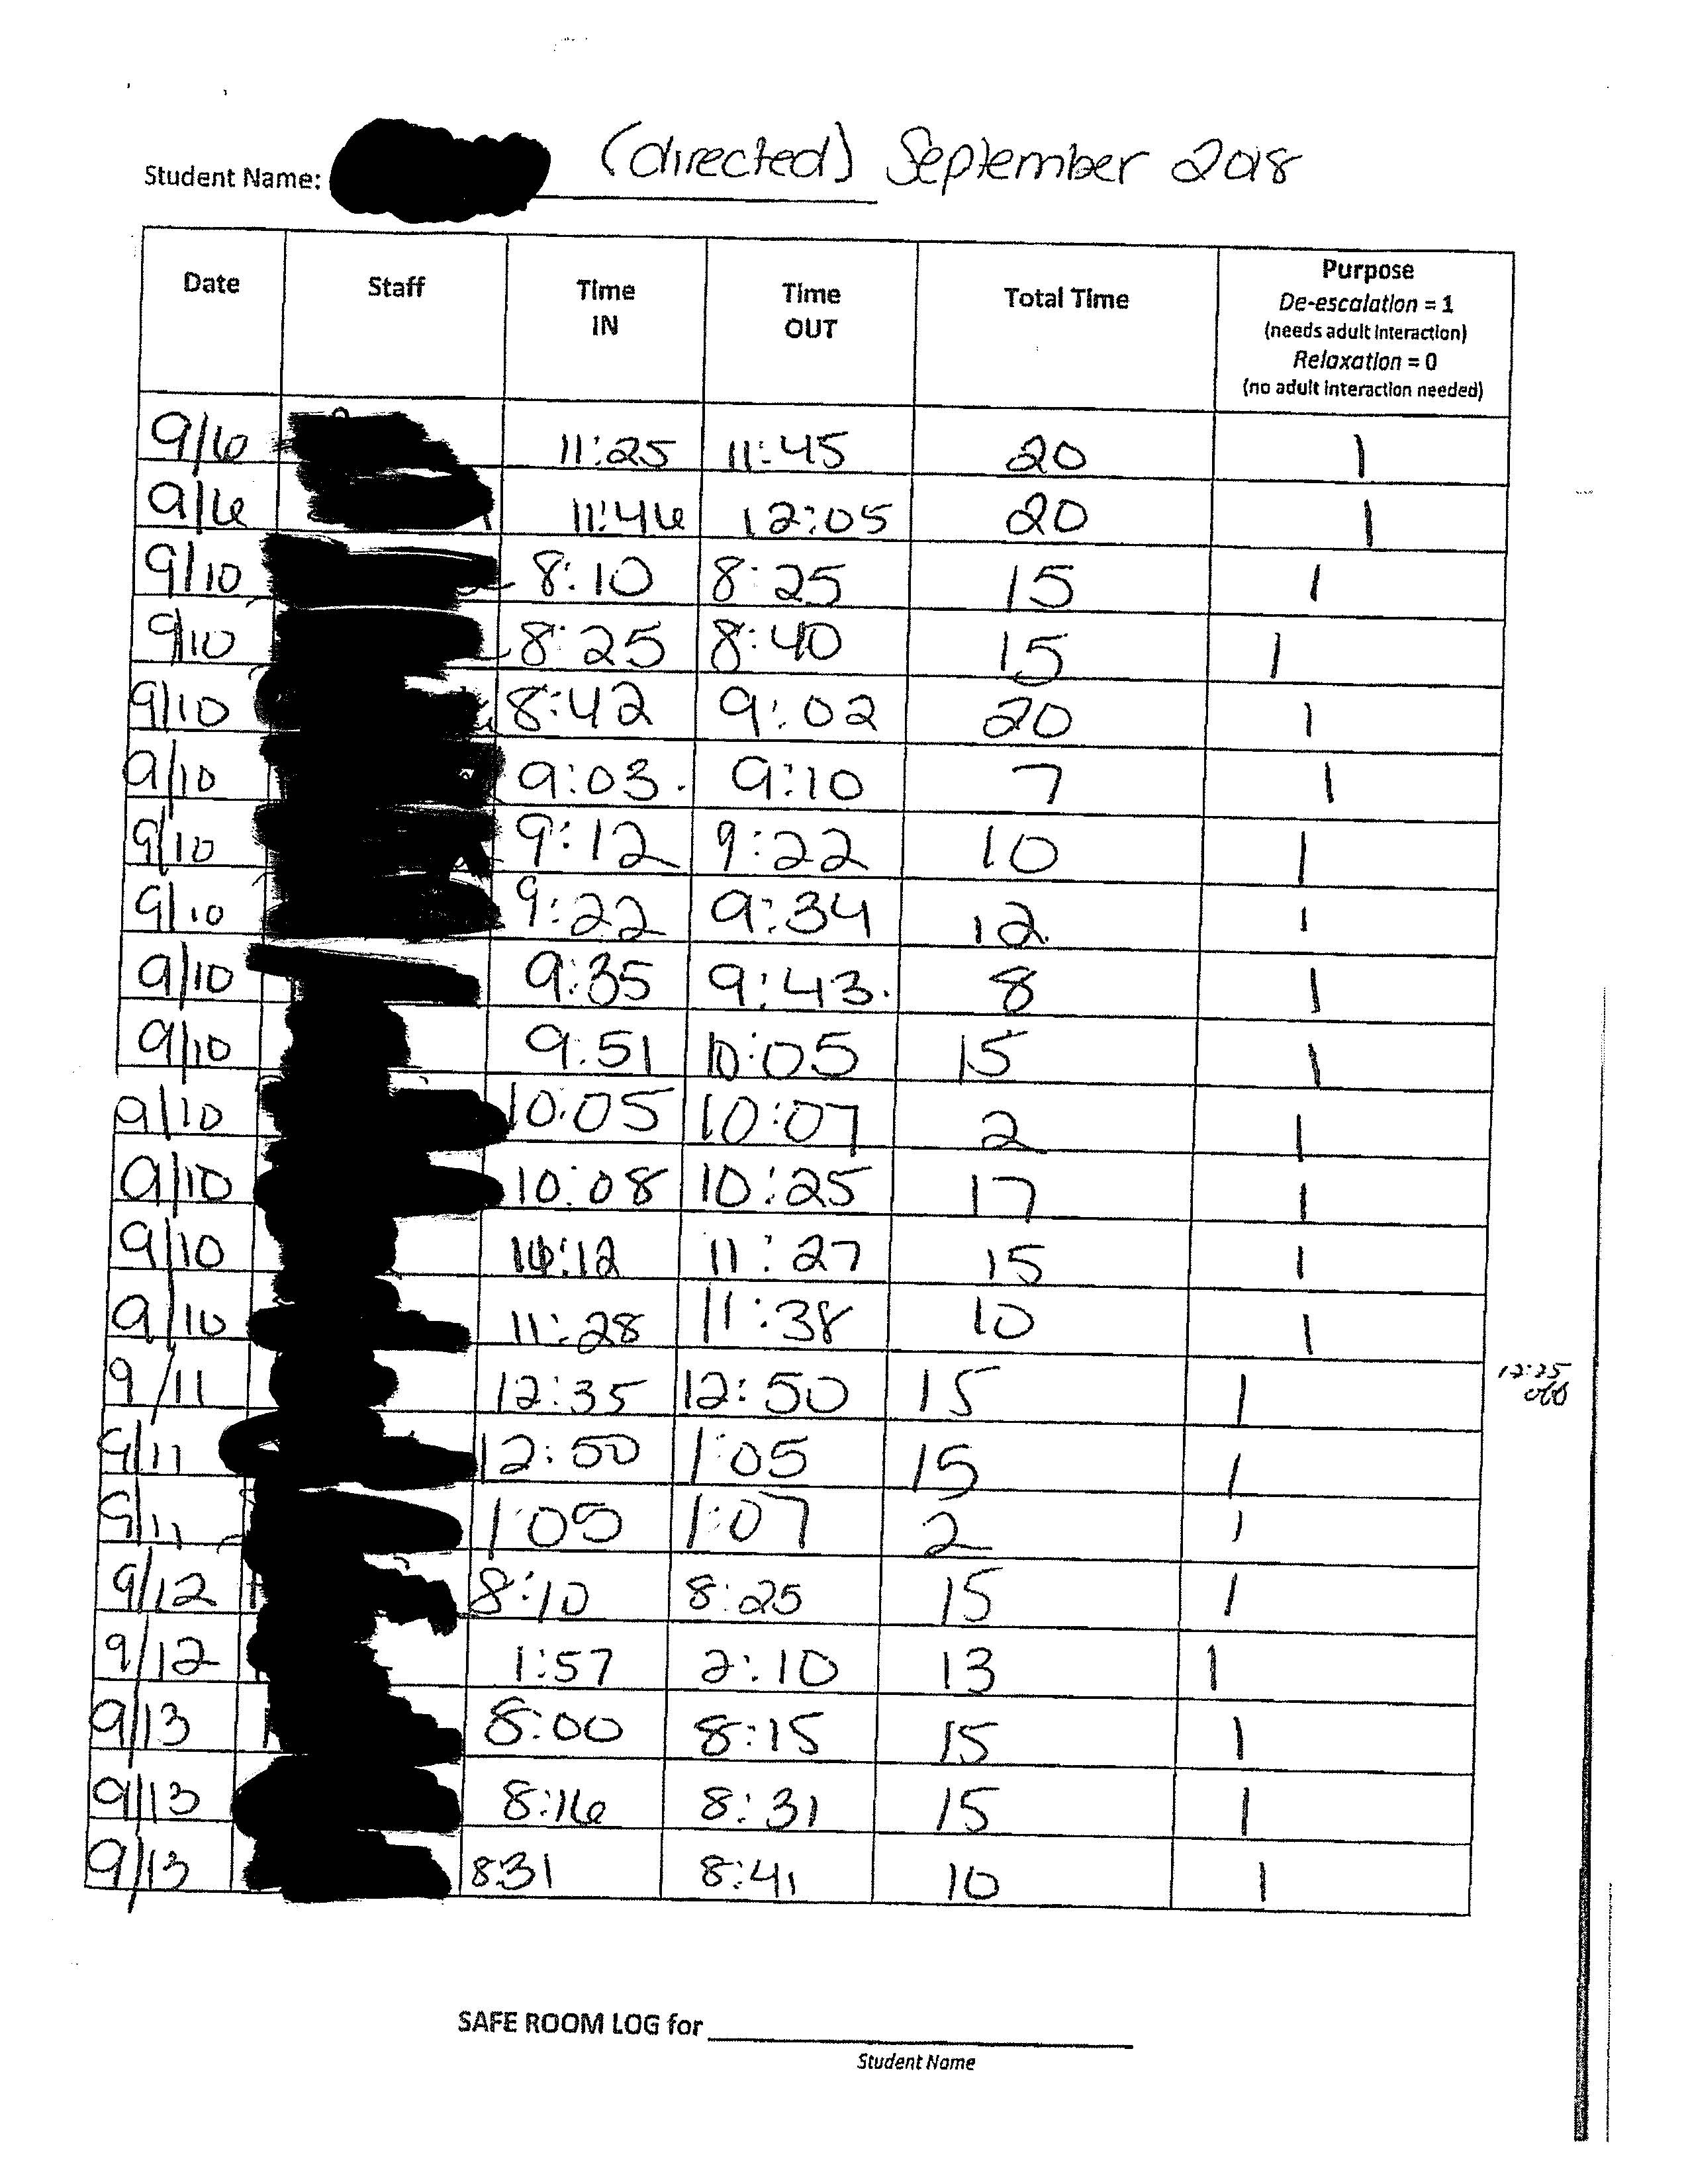 Student Name: (directed) September 2018
Date Staff Time IN Time OUT Total Time Purpose
De-escalation = 1
(needs adult interaction)
Relaxation = 0
(no adult interaction needed)
9/6 11:25 11:45 20 1
9/6 11:46 12:05 20 1
9/10 8:10 8:25 15 1
9/10 8:25 8:40 15 1
9/10 8:42 9:02 20 1
9/10 9:03 9:10 7 1
9/10 9:12 9:22 10 1
9/10 9:22 9:34 12 1
9/10 9:35 9:43 8 1
9/10 9:51 10:05 15 1
9/10 10:05 10:07 2 1
9/10 10:08 10:25 17 1
9/10 11:12 11:27 15 1
9/10 11:28 11:38 10 1
9/11 12:35 12:50 15 1 12:25
9/11 12:50 1:05 15 1
9/11 1:05 1:07 2 1
9/12 8:10 8:25 15 1
9/12 1:57 2:10 13 1
9/13 8:00 8:15 15 1
9/13 8:16 8:31 15 1
9/13 8:31 8:41 10 1
SAFE ROOM LOG for
Student Name